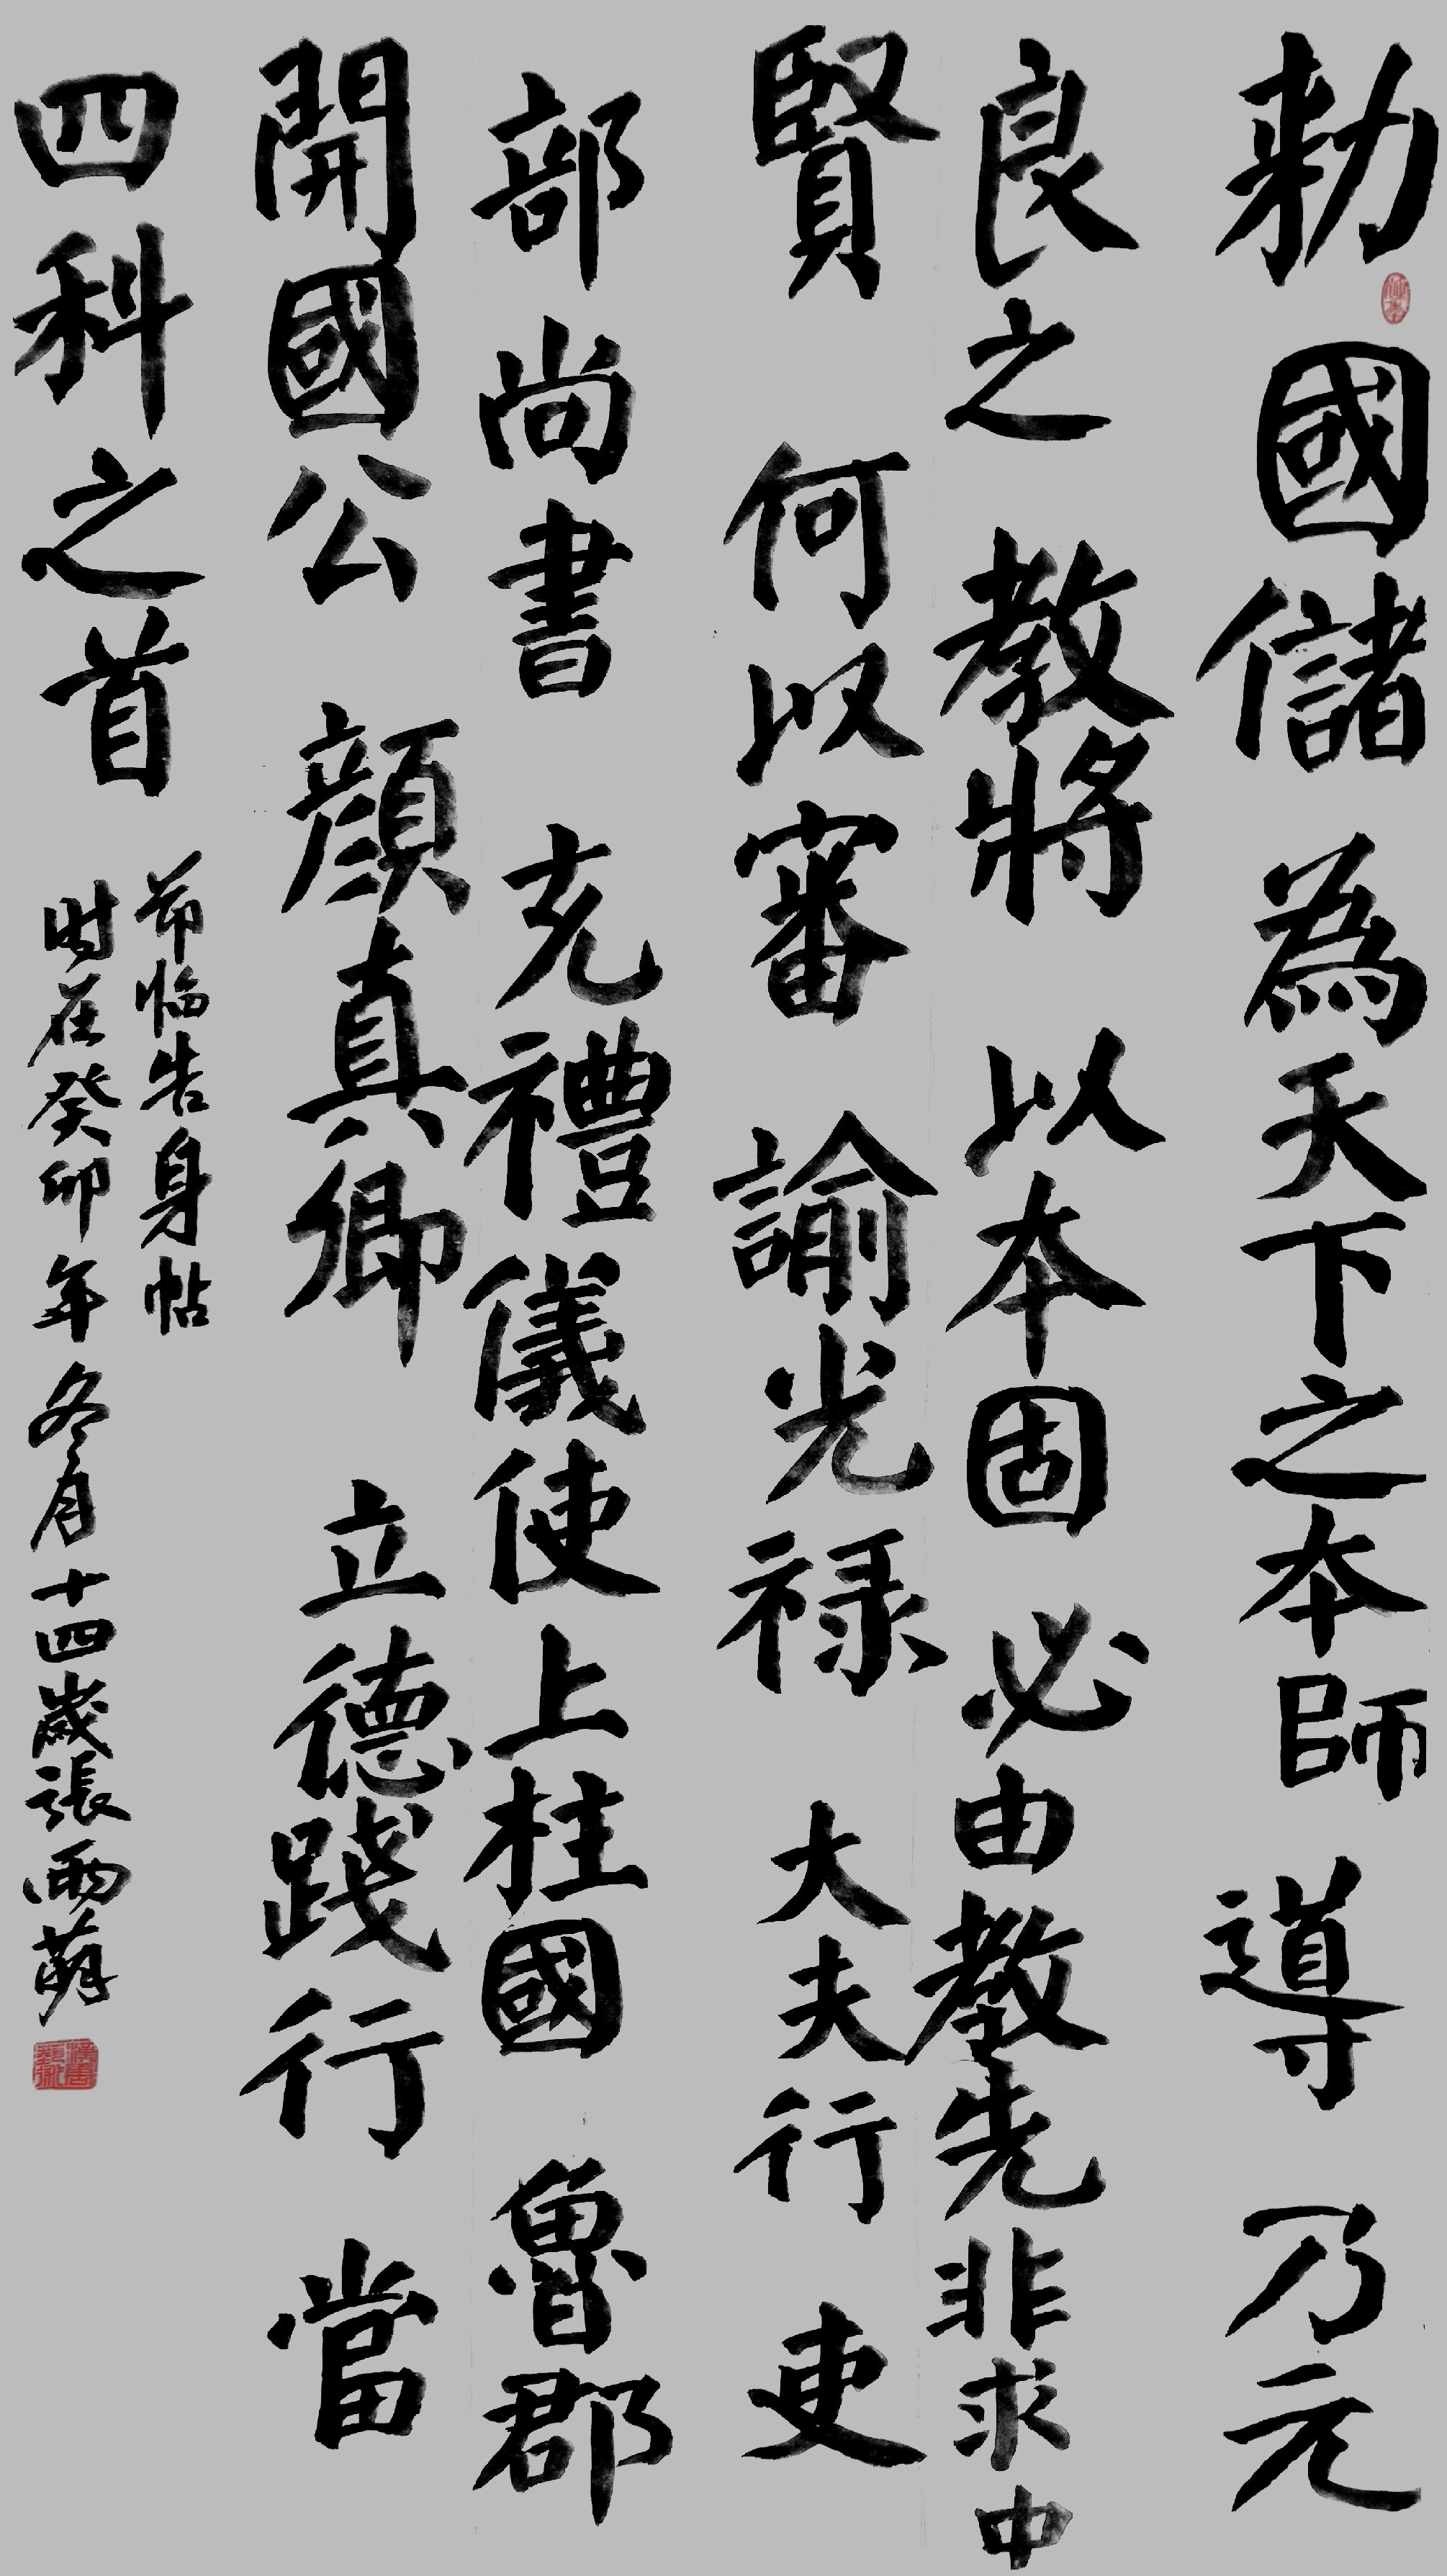 勑國儲為天下之本師導乃元
良之教將以本固必由教先非求中
賢何以審諭光禄大夫行吏
部尚書充禮儀使上柱國魯郡
開國公顔真卿立德踐行當
四科之首
节临告身帖
时在癸卯年冬月十四歲張雨